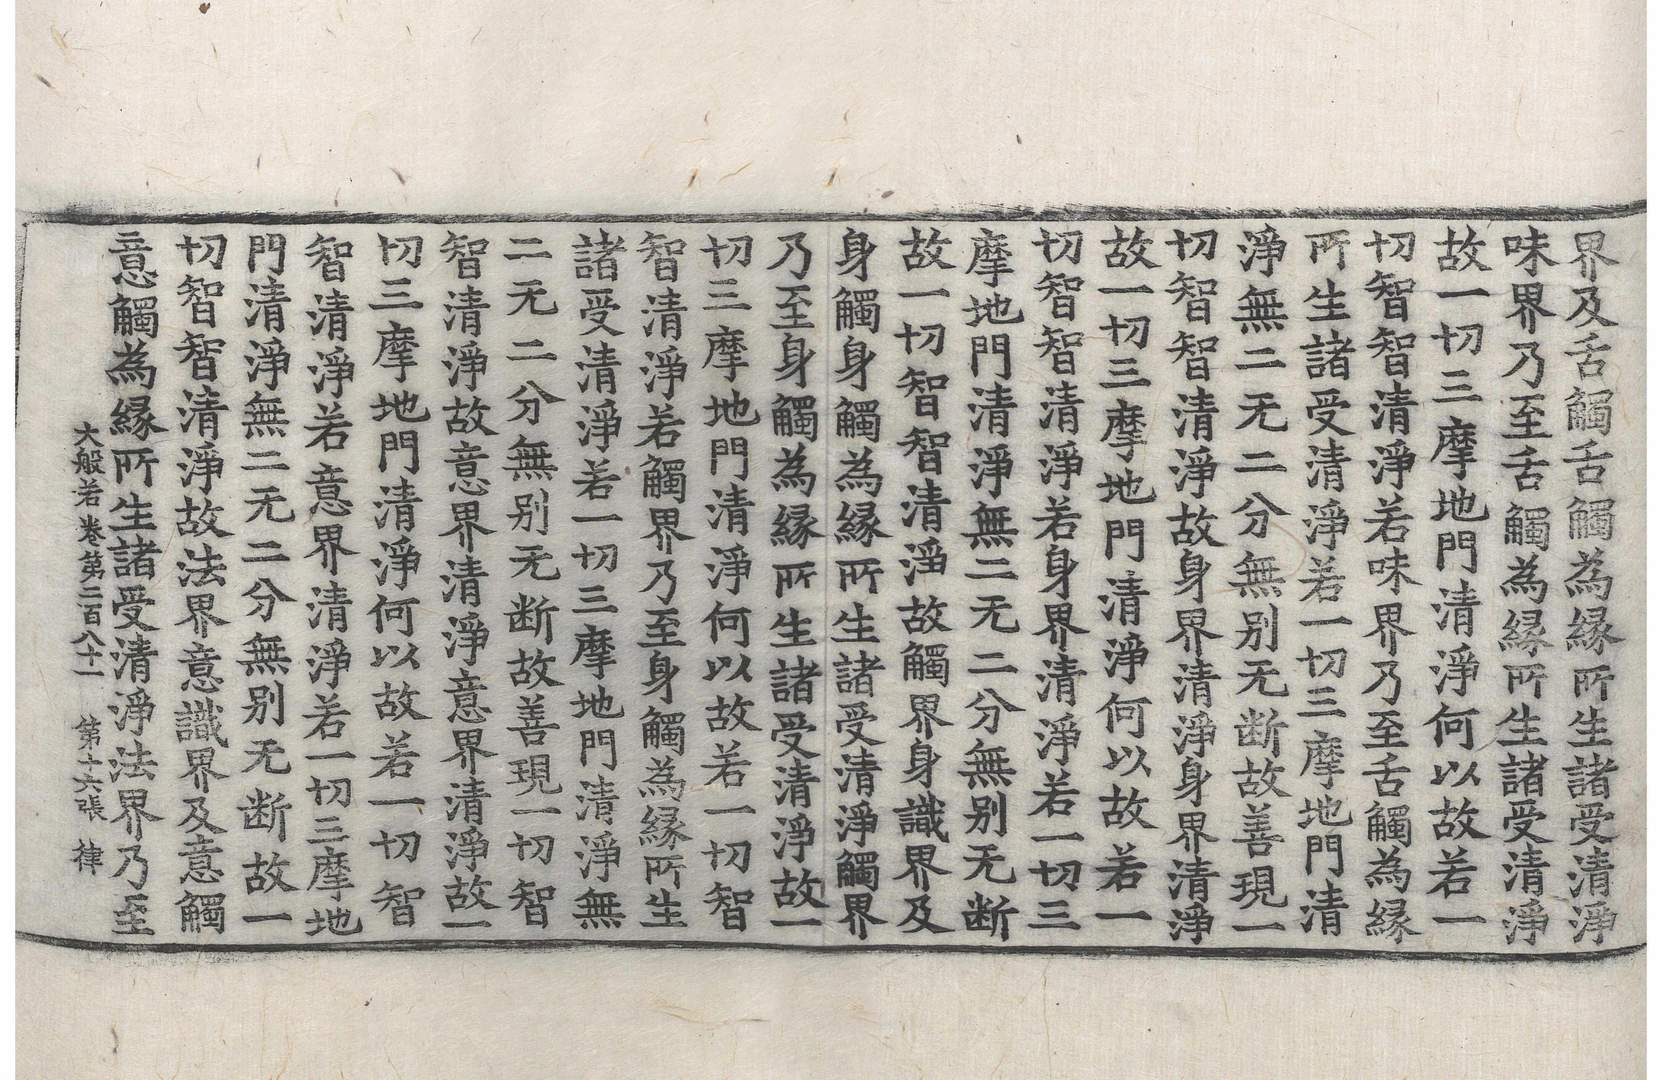 界及舌觸舌觸為縁所生諸受清淨
味界乃至舌觸為縁所生諸受清淨
故一切三摩地門清淨何以故若一
切智智清淨若味界乃至舌觸為縁
所生諸受清淨若一切三摩地門清
淨無二无二分無别无断故善現一
切智智清淨故身界清淨身界清淨
故一切三摩地門清淨何以故若一
切智智清淨若身界清淨若一切三
摩地門清淨無二无二分無别无断
故一切智智清淨故觸界身識界及
身觸身觸為縁所生諸受清淨觸界
乃至身觸為縁所生諸受清淨故一
切三摩地門清淨何以故若一切智
智清淨若觸界乃至身觸為縁所生
諸受清淨若一切三摩地門清淨無
二无二分無别无断故善現一切智
智清淨故意界清淨意界清淨故一
切三摩地門清淨何以故若一切智
智清淨若意界清淨若一切三摩地
門清淨無二无二分無别无断故一
切智智清淨故法界意識界及意觸
意觸為縁所生諸受清淨法界乃至
大般若卷第二百八十一 第十六張 律